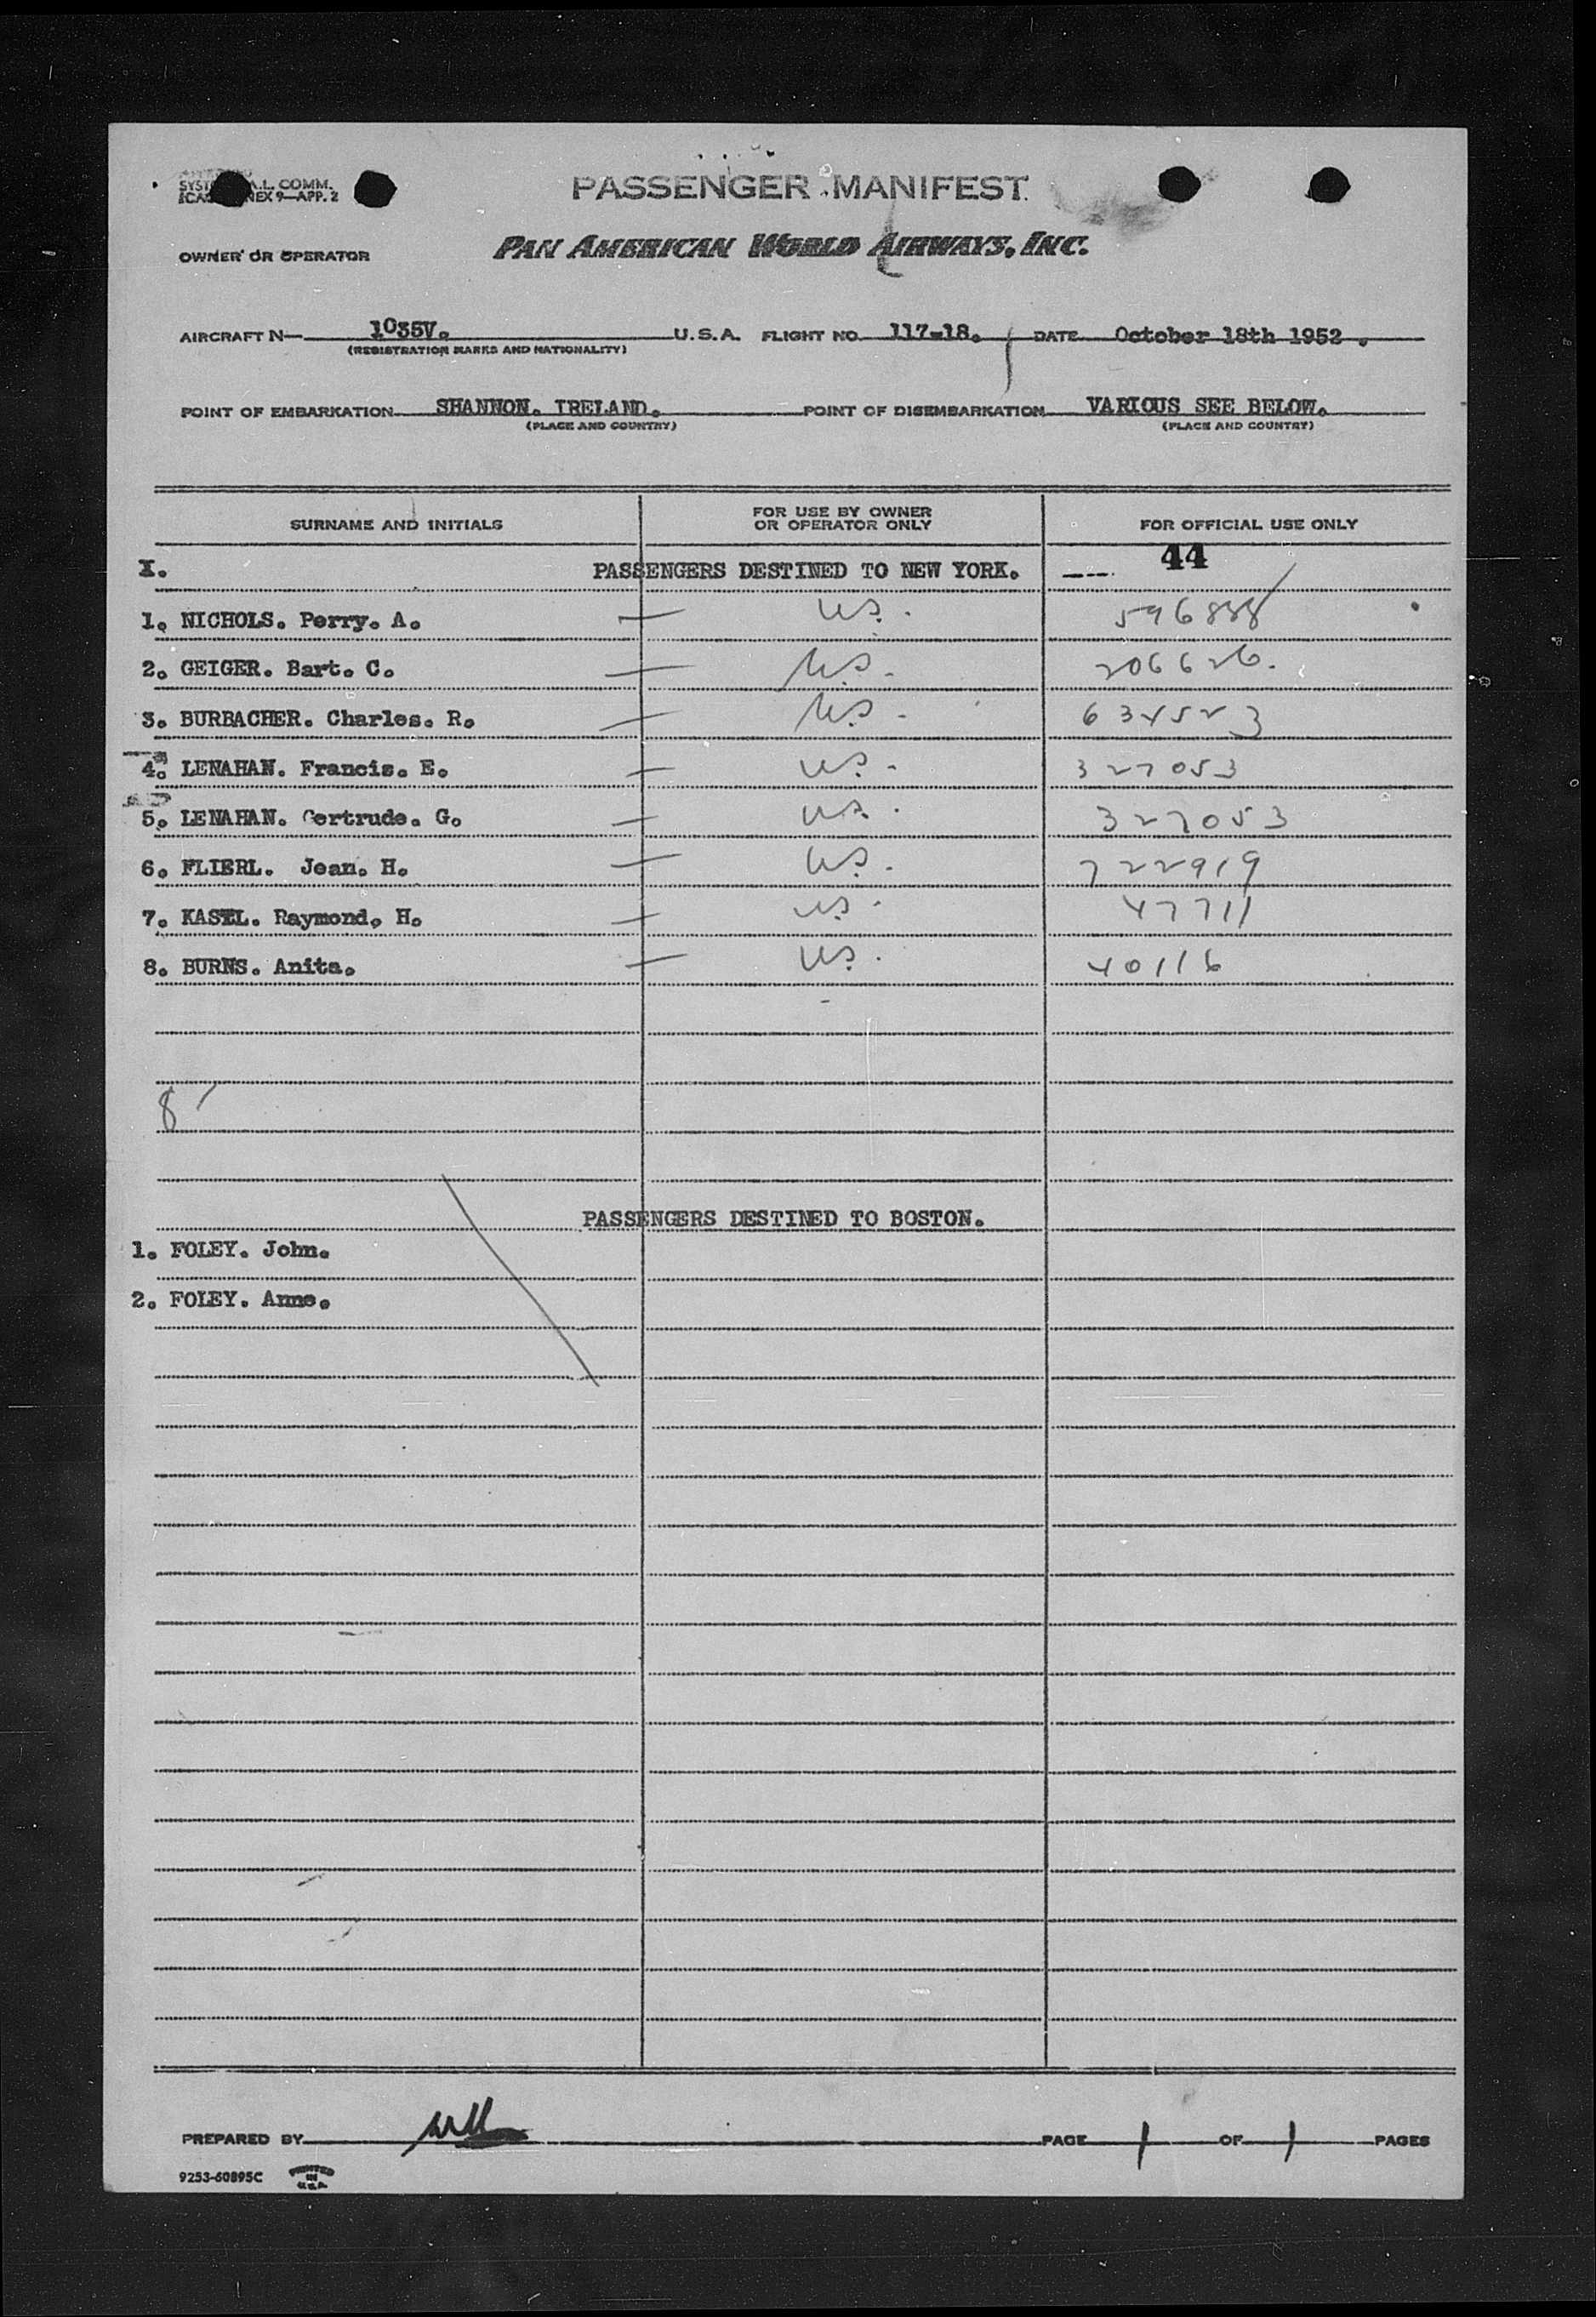 PASSENGER MANIFEST
L. COMM.
NEX 9—APP. 2
OWNER OR OPERATOR PAN AMERICAN WORLD AIRWAYS, INC.
AIRCRAFT N— 1035V. U.S.A. FLIGHT NO. 117-18. DATE October 18th 1952.
(REGISTRATION MARKS AND NATIONALITY)
POINT OF EMBARKATION SHANNON. IRELAND. POINT OF DISEMBARKATION VARIOUS SEE BELOW.
(PLACE AND COUNTRY) (PLACE AND COUNTRY)
SURNAME AND INITIALS FOR USE BY OWNER OR OPERATOR ONLY FOR OFFICIAL USE ONLY
I. PASSENGERS DESTINED TO NEW YORK. ---- 44
1. NICHOLS. Perry. A. — US. 596888
2. GEIGER. Bart. C. — US. 206626.
3. BURBACHER. Charles. R. — US. 634523
4. LENAHAN. Francis. E. — US. 327053
5. LENAHAN. Gertrude. G. — US. 327053
6. FLIERL. Jean. H. — US. 722919
7. KASEL. Raymond. H. — US. 47711
8. BURNS. Anita. — US. 40116
8
PASSENGERS DESTINED TO BOSTON.
1. FOLEY. John.
2. FOLEY. Anne.
PREPARED BY PAGE 1 OF 1 PAGES
9253-60895C PRINTED IN U.S.A.